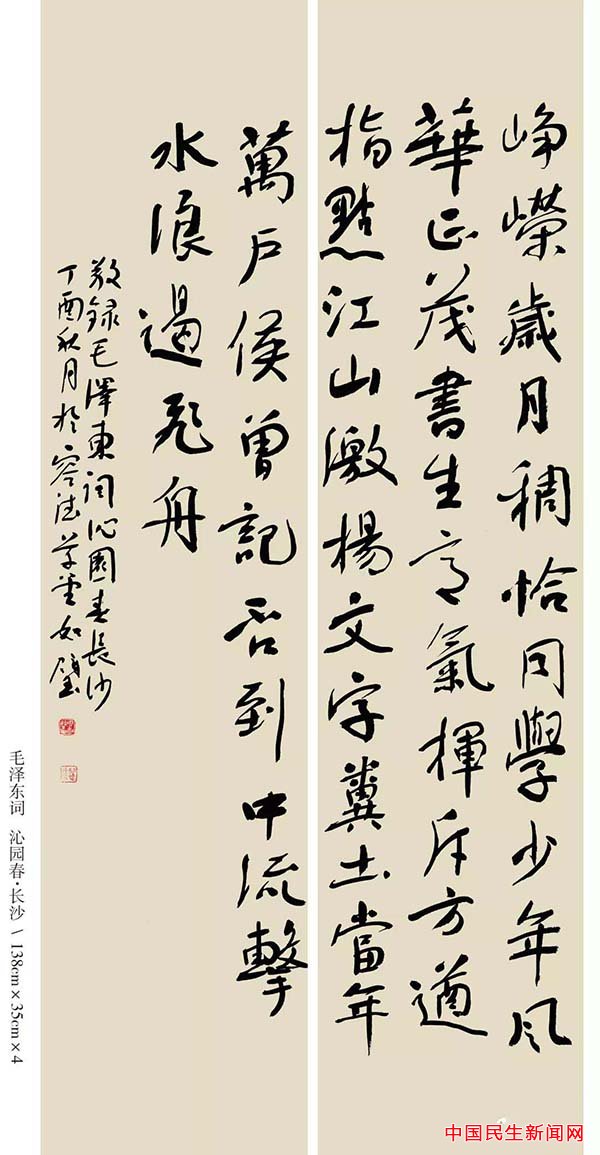 崢嶸歲月稠恰同學少年风
華正茂書生意氣揮斥方遒
指點江山激楊文字糞土當年
萬户侯曾記否到中流擊
水浪遏飛舟
敬録毛澤東词沁園春長沙
丁酉秋月於容德草堂如璧
毛泽东词 沁园春·长沙 \ 138cm×35cm×4
中国民生新闻网